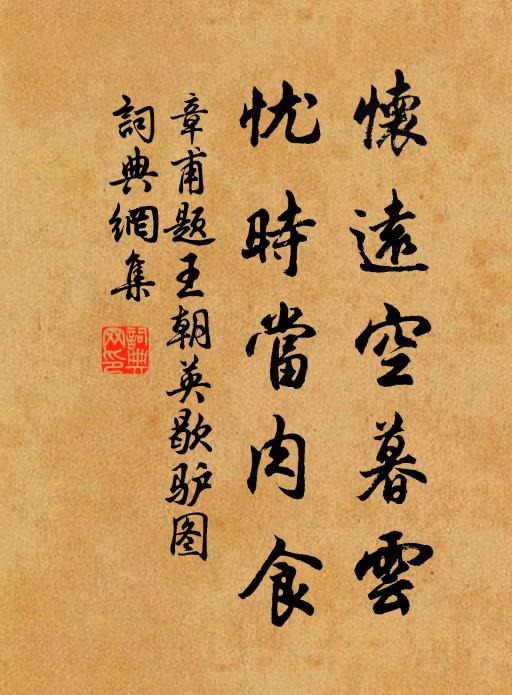 懷遠空暮雲
忧時當肉食
章甫题王朝英歇驴图
詞典網集
詞典
网印